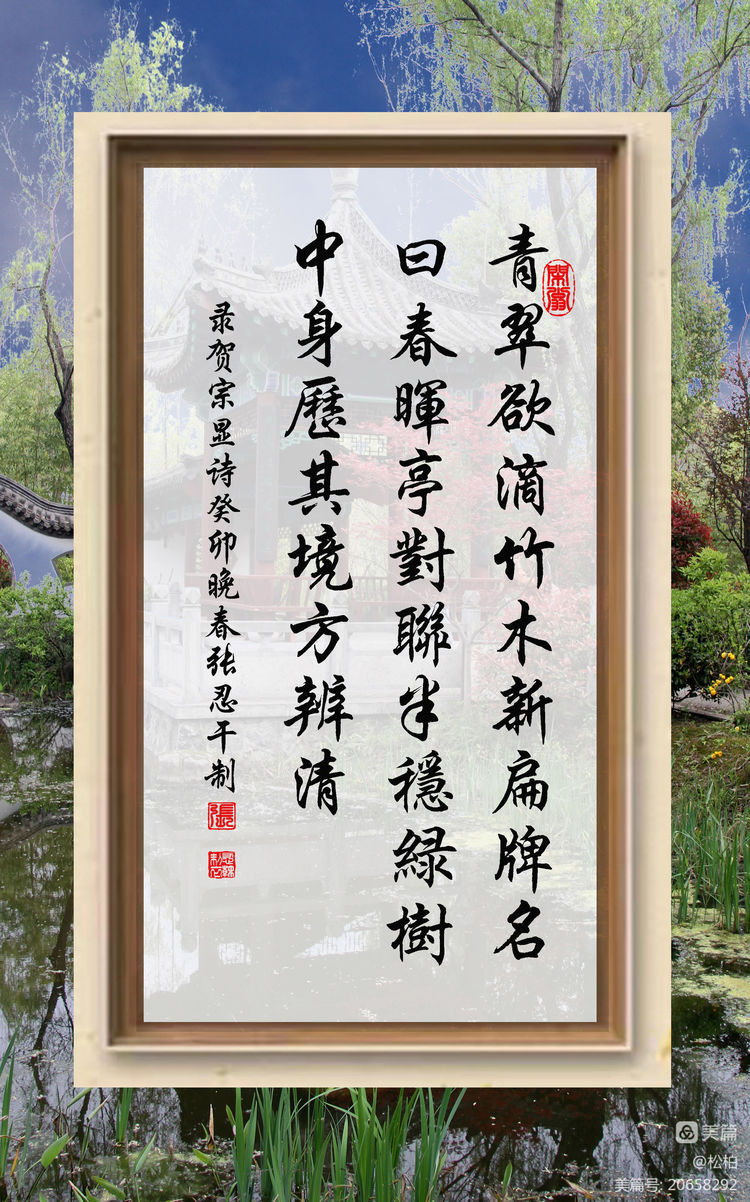 青翠欲滴竹木新扁牌名
曰春暉亭對聯半穩綠樹
中身歷其境方辨清
录贺宗显诗癸卯晚春张忍干制
張
美篇
@松柏
美篇号: 20658292